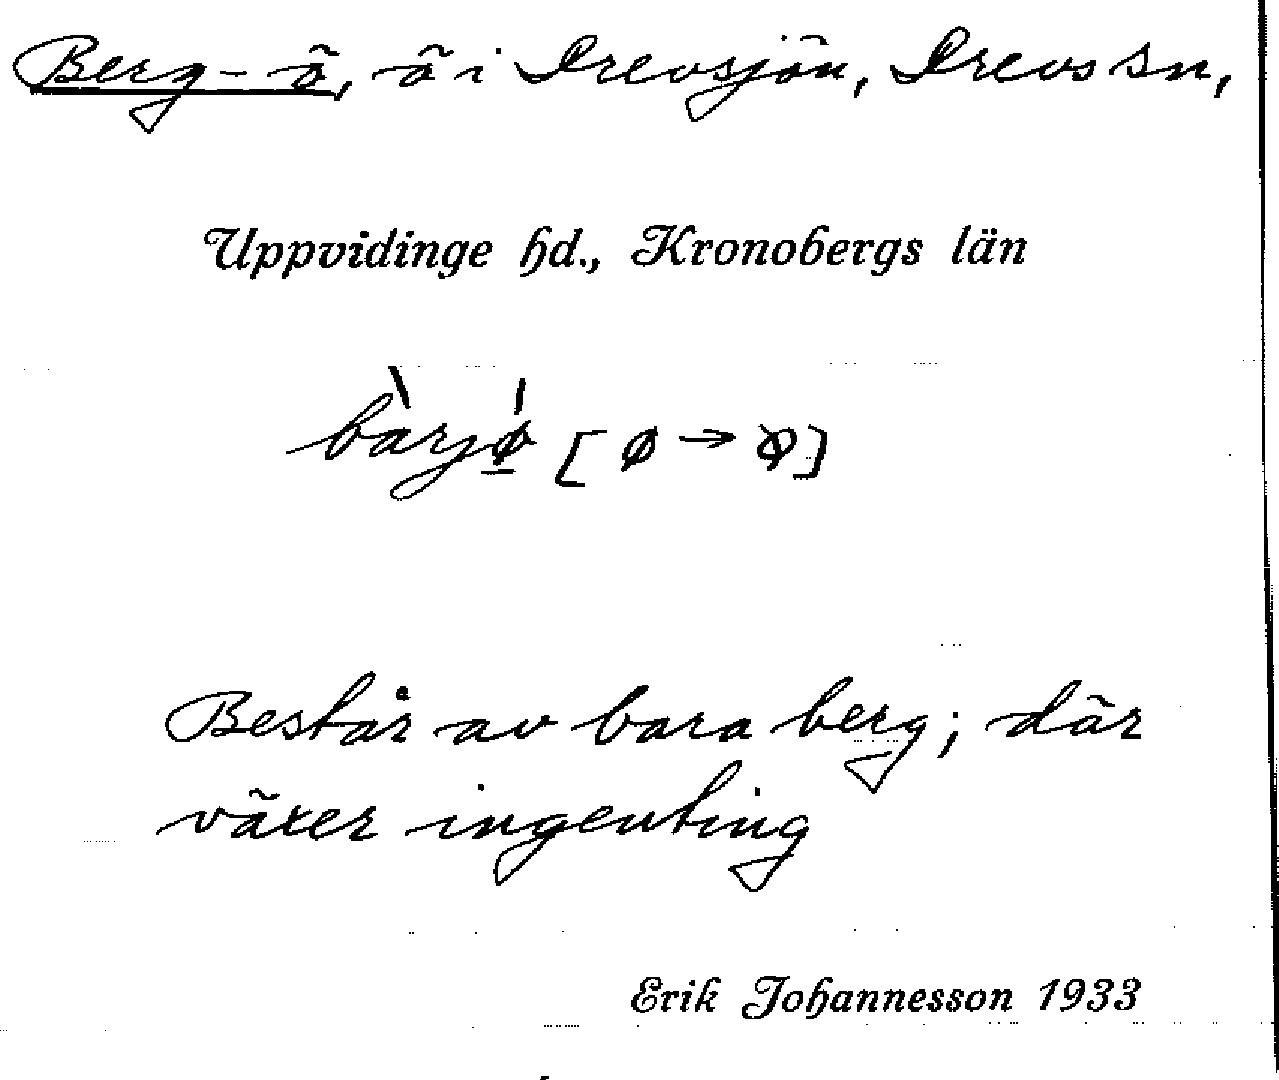 Berg-ö, ö i Drevsjön, Drevs sn,
Uppvidinge hd., Kronobergs län
bàrjǿ̲ [ø → ø]
Består av bara berg; där
växer ingenting
Erik Johannesson 1933